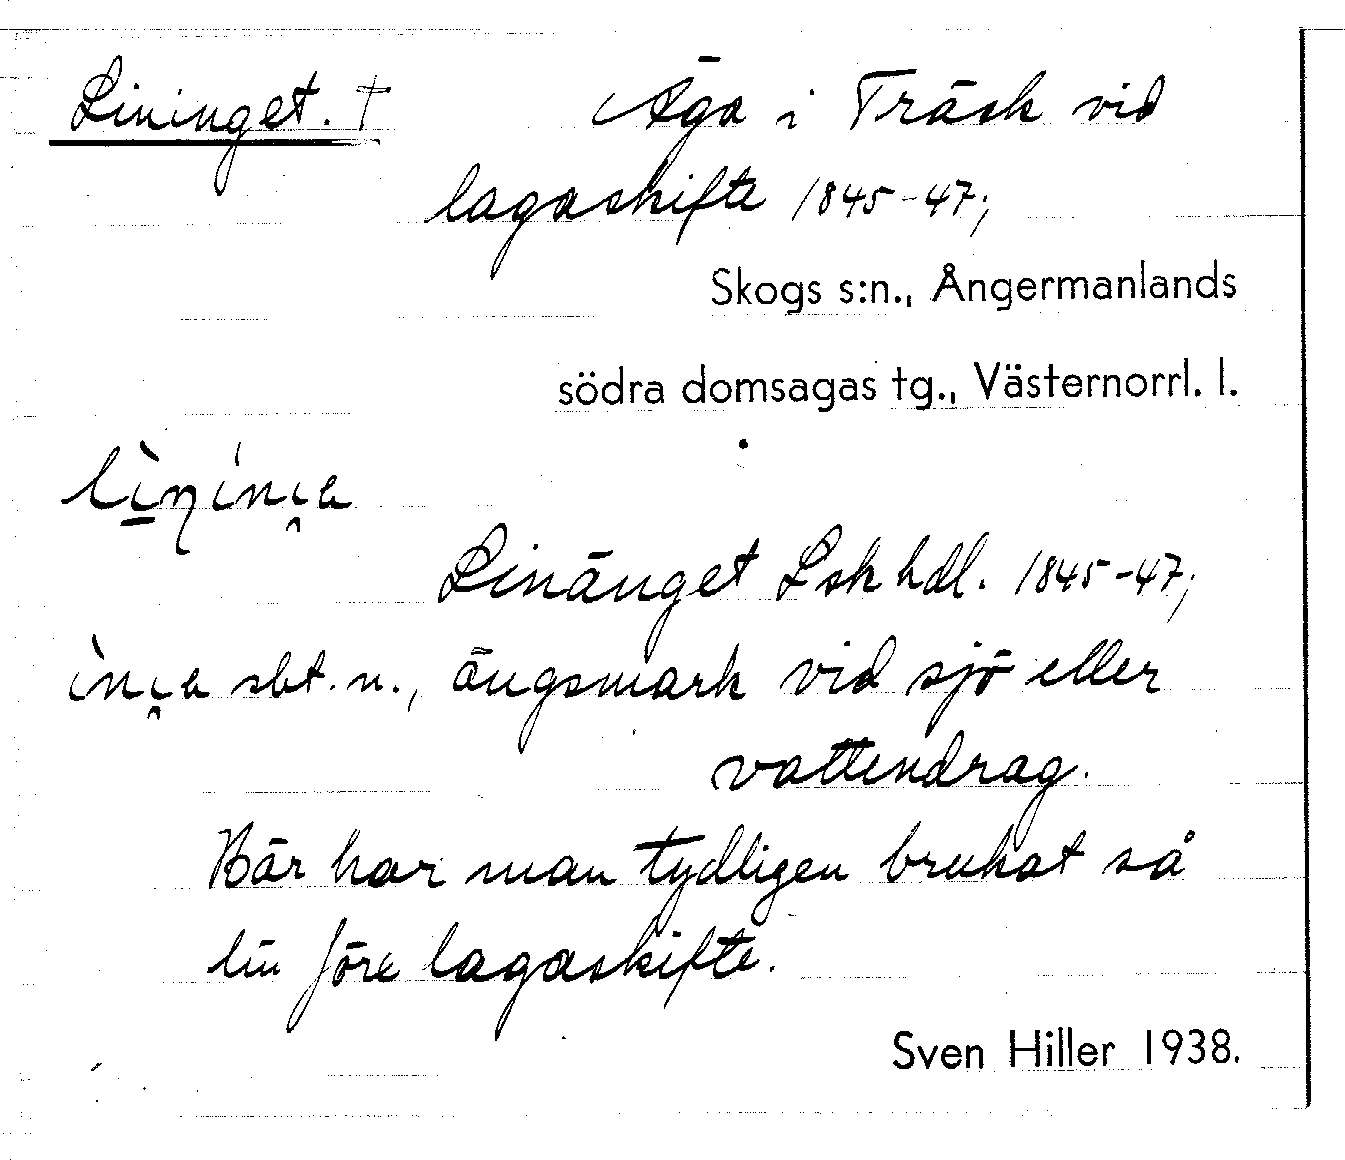 Lininget. † Äga i Träsk vid
lagaskifte 1845-47;
Skogs s:n., Ångermanlands
södra domsagas tg., Västernorrl. l.
Linänget Lsk hdl. 1845-47;
sbt. n., ängsmark vid sjö eller
vattendrag.
Här har man tydligen brukat så
lin före lagaskifte.
Sven Hiller 1938.